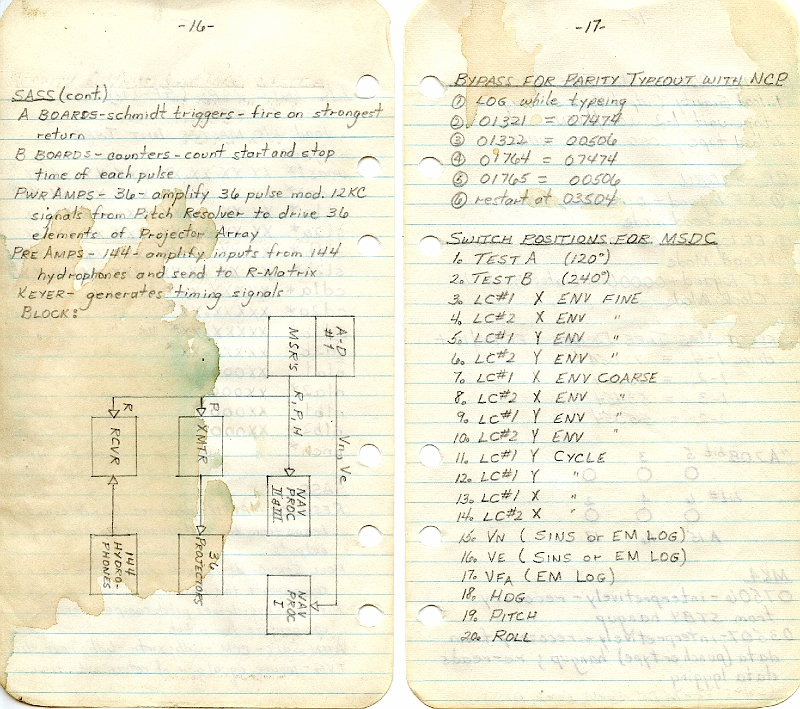 -16-
SASS (cont.)
A BOARDS-schmidt triggers- fire on strongest
return
B BOARDS- counters- count start and stop
time of each pulse
PWR AMPS- 36- amplify 36 pulse mod. 12KC
signals from Pitch Resolver to drive 36
elements of Projector Array
PRE AMPS- 144- amplify inputs from 144
hydrophones and send to R-Matrix
KEYER- generates timing signals
BLOCK:
A-D
#1
MSR'S
R, P, H
Vn, Ve
R
P
RCVR
XMTR
NAV
PROC
II & III
144
HYDRO-
PHONES
36
PROJECTORS
NAV
PROC
I
-17-
BYPASS FOR PARITY TYPEOUT WITH NCP
① LOG while typeing
② 01321 = 07474
③ 01322 = 00506
④ 09764 = 07474
⑤ 01765 = 00506
⑥ restart at 03504
SWITCH POSITIONS FOR MSDC
1. TEST A (120°)
2. TEST B (240°)
3. LC#1 X ENV FINE
4. LC#2 X ENV "
5. LC#1 Y ENV "
6. LC#2 Y ENV "
7. LC#1 X ENV COARSE
8. LC#2 X ENV "
9. LC#1 Y ENV "
10. LC#2 Y ENV "
11. LC#1 Y CYCLE
12. LC#1 Y "
13. LC#1 X "
14. LC#2 X "
15. VN (SINS or EM LOG)
16. VE (SINS or EM LOG)
17. VFA (EM LOG)
18. HDG
19. PITCH
20. ROLL